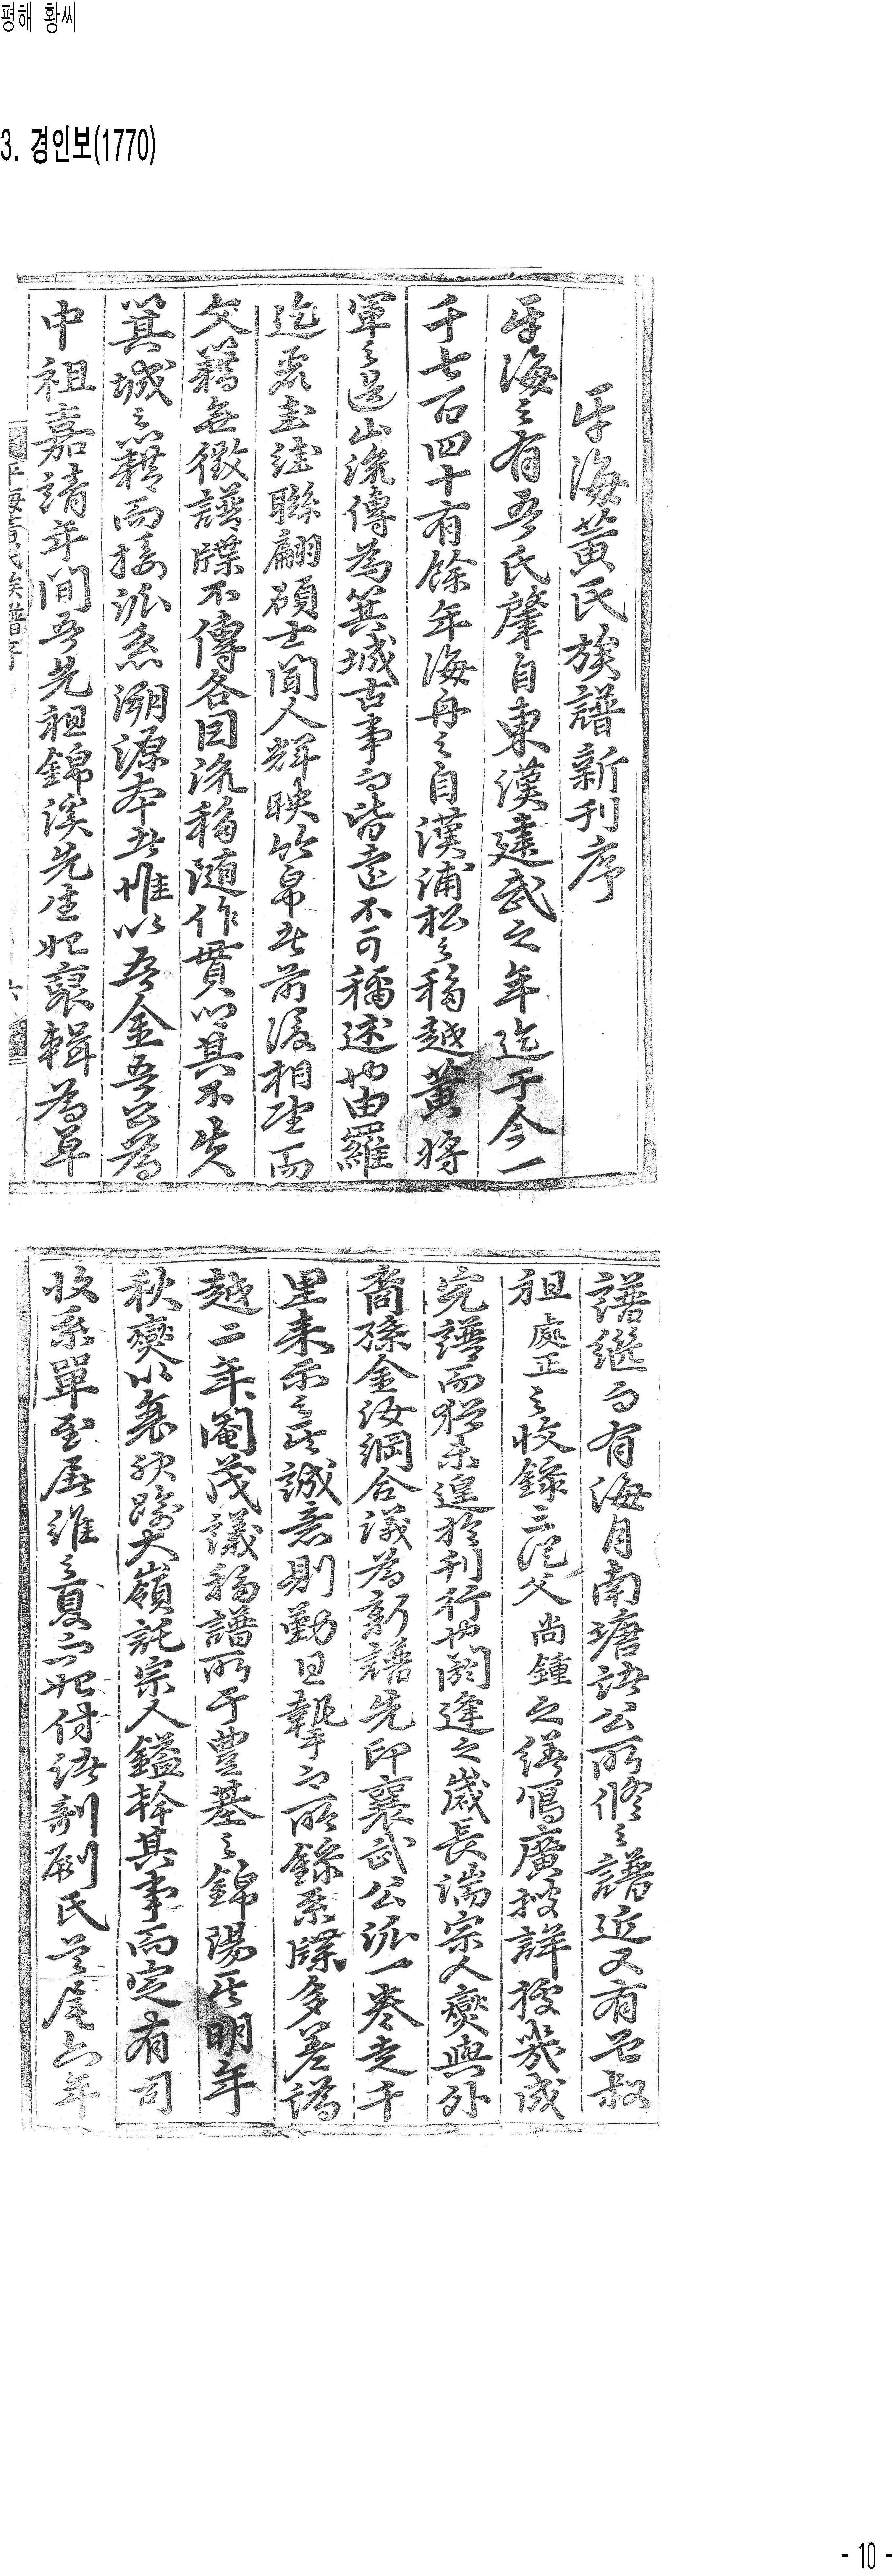 평해 황씨
3. 경인보(1770)
平海黃氏族譜新刊序
平海之有吾氏肇自東漢建武之年迄于今一
千七百四十有餘年海舟之自漢浦松之移越黃將
軍之是山流傳為箕城古事而皆遠不可稱述也由羅
迄麗圭組聯翩碩士聞人輝映竹帛者前後相望而
文籍無徵譜牒不傳各因流移隨作貫以其不失
箕城之籍而接派系溯源本者惟以吾金吾公為
中祖嘉靖年間吾先祖錦溪先生始裒輯為草
平海黃氏族譜序
六
譜繼而有海月南塘諸公所修之譜近又有從叔
祖處正之收錄三從父尚鍾之繕寫廣搜詳按幾成
完譜而猶未遑於刊行也閼逢之歲長湍宗人㷜與外
裔孫金汝綱合議為新譜先印襄武公派一卷走千
里來示之其誠意則勤且摯而所錄系牒多差誤
越二年閹茂議移譜所于豐基之錦陽其明年
秋㷜以衰疾踰大嶺託宗人鎰幹其事而定有司
收系單至屠維之夏而始付諸剞劂氏首尾六年
- 10 -